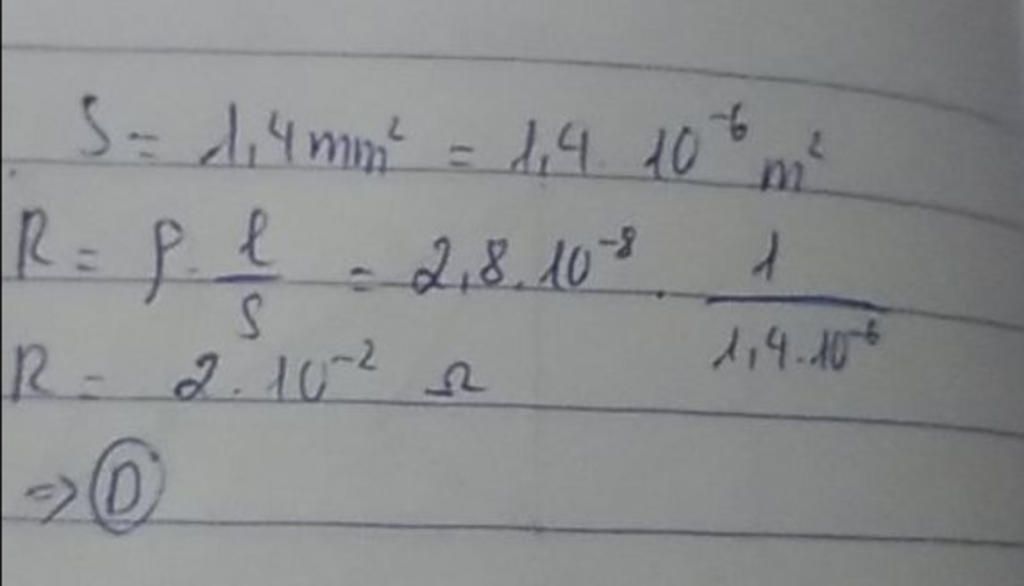 S = 1,4 mm² = 1,4 . 10⁻⁶ m²
R = ρ . l/S = 2,8 . 10⁻⁸ . 1/1,4 . 10⁻⁶
R = 2 . 10⁻² Ω
=> D